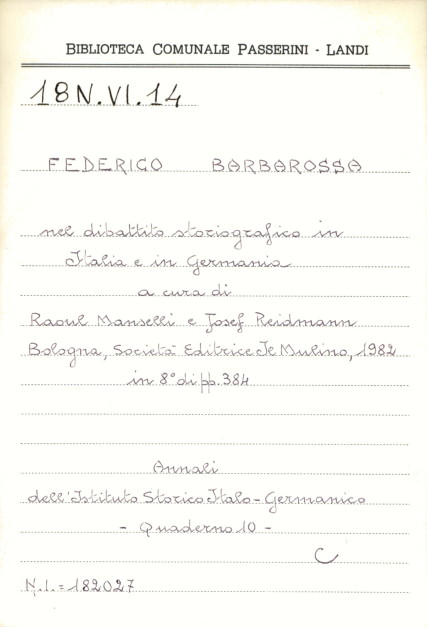 BIBLIOTECA COMUNALE PASSERINI - LANDI
18N.VI.14
FEDERICO BARBAROSSA
nel dibattito storiografico in
Italia e in Germania
a cura di
Raoul Manselli e Josef Reidmann
Bologna, Società Editrice Il Mulino, 1982
in 8° di pp. 384
Annali
dell'Istituto Storico Italo-Germanico
- Quaderno 10 -
C
N.I. = 182027